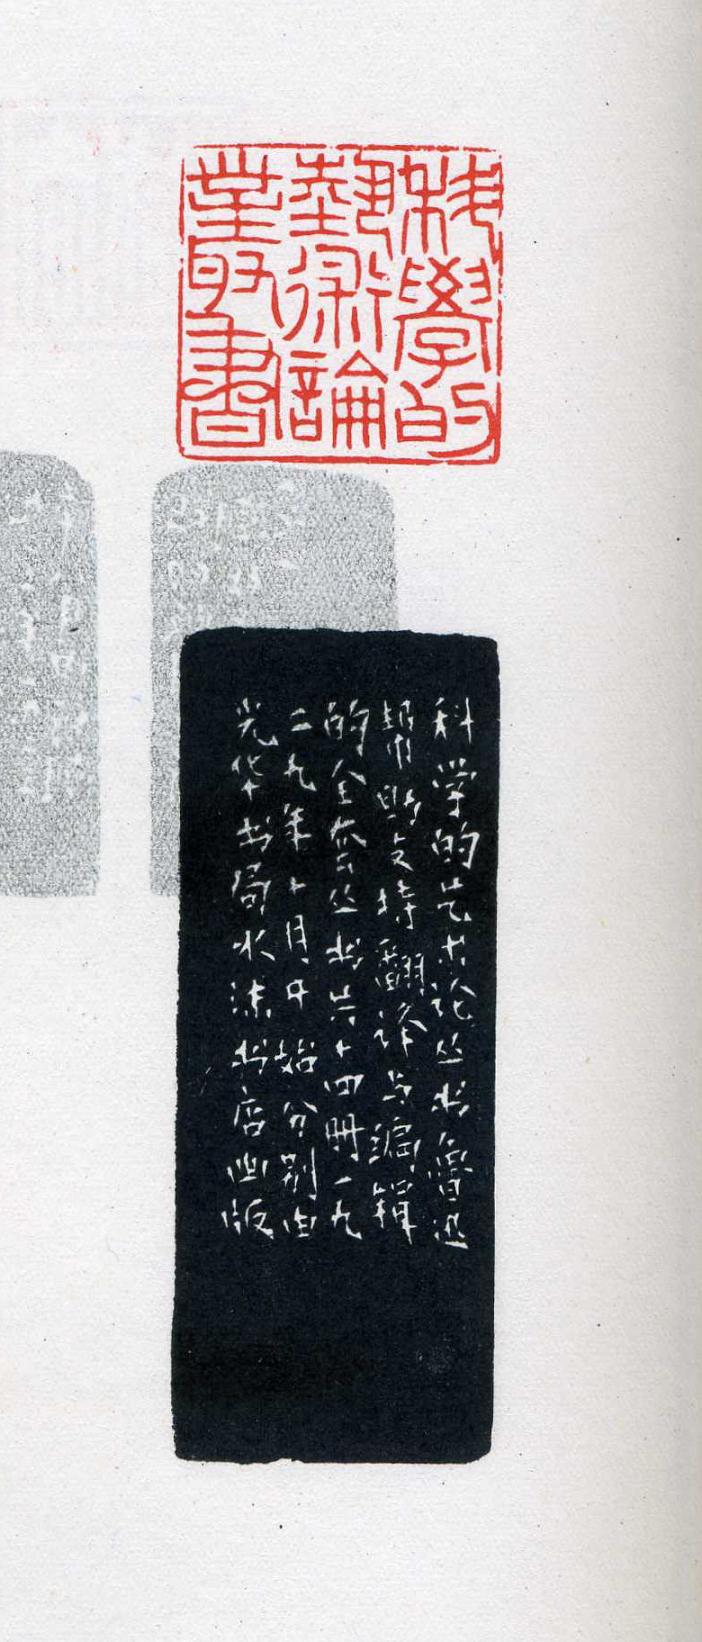 科學的
藝術論
叢書
科学的艺术论丛书鲁迅
帮助支持翻译与编辑
的全套丛书共十四册一九
二九年十月中始分别由
光华书局水沫书店出版